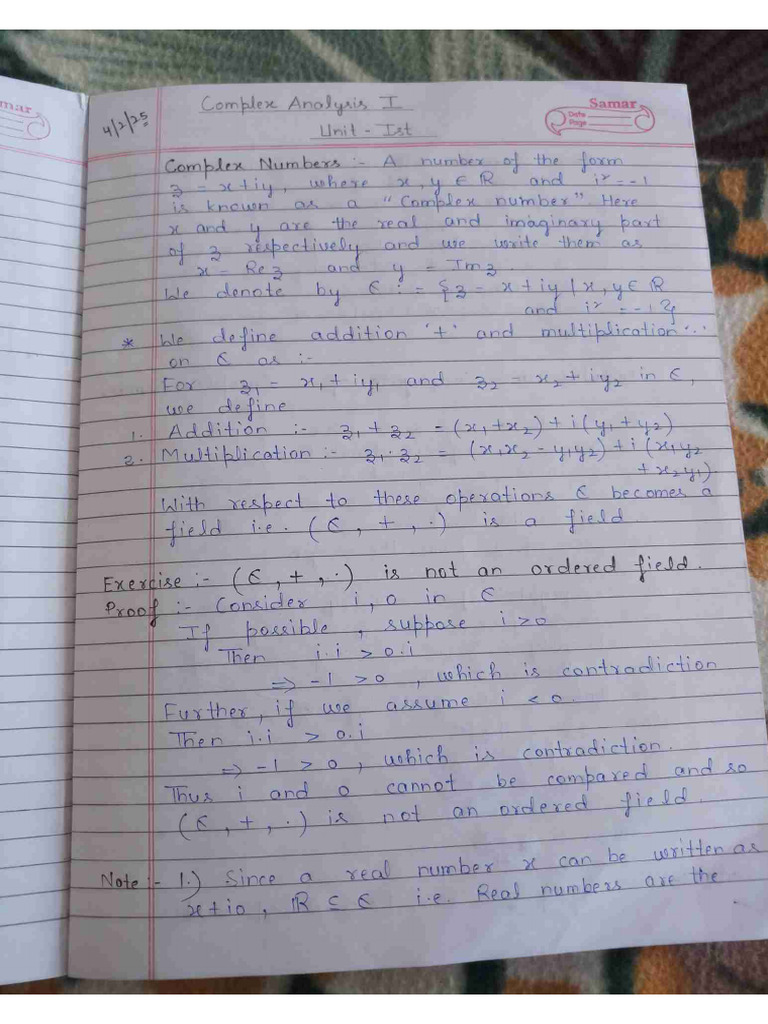 mar
4/2/25
Complex Analysis I
Samar
Date
Page
Unit - Ist
Complex Numbers :- A number of the form
z = x+iy, where x, y ∈ ℝ and i² = -1
is known as a "Complex number". Here
x and y are the real and imaginary part
of z respectively and we write them as
x = Re z and y = Im z.
We denote by ℂ := {z = x + iy | x, y ∈ ℝ
and i² = -1}
* We define addition '+' and multiplication '.'
on ℂ as :-
For z₁ = x₁ + iy₁ and z₂ = x₂ + iy₂ in ℂ,
we define
1. Addition :- z₁ + z₂ = (x₁ + x₂) + i (y₁ + y₂)
2. Multiplication :- z₁ . z₂ = (x₁x₂ - y₁y₂) + i (x₁y₂
+ x₂y₁).
With respect to these operations ℂ becomes a
field i.e. (ℂ, +, .) is a field.
Exercise :- (ℂ, +, .) is not an ordered field.
Proof :- Consider i, 0 in ℂ
If possible, suppose i > 0
Then i.i > 0.i
⇒ -1 > 0, which is contradiction
Further, if we assume i < 0.
Then i.i > 0.i
⇒ -1 > 0, which is contradiction.
Thus i and 0 cannot be compared and so
(ℂ, +, .) is not an ordered field.
Note :- 1.) Since a real number x can be written as
x + i0, ℝ ⊆ ℂ i.e. Real numbers are the